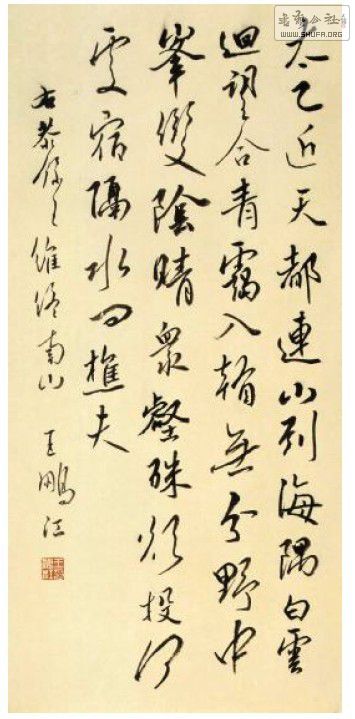 太乙近天都連山到海隅白雲
迴望合青靄入看無分野中
峯變陰晴衆壑殊欲投何
處宿隔水問樵夫
右恭錄王維終南山 王鵬江
書法公社
WWW.SHUFA.ORG